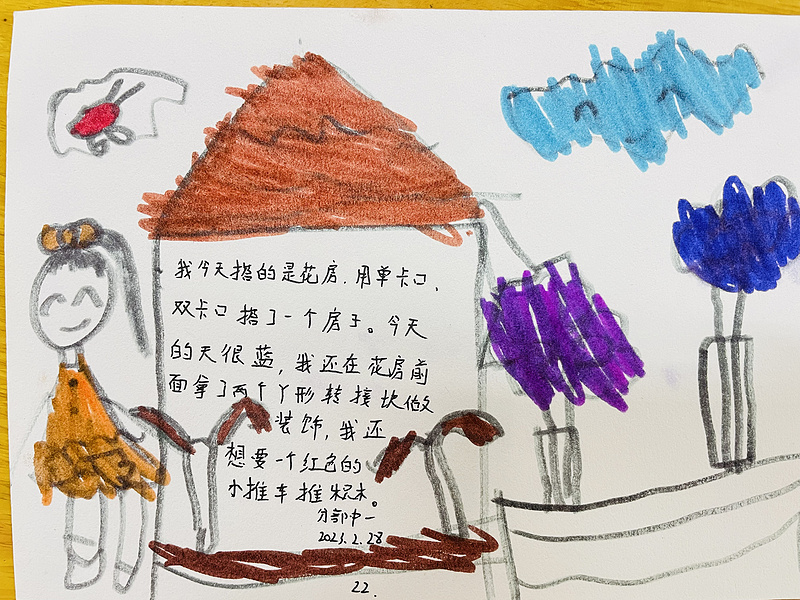 我今天搭的是花房.用单卡口、
双卡口搭了一个房子。今天
的天很蓝，我还在花房前
面拿了两个丫形转接块做
装饰，我还
想要一个红色的
小推车推积木。
分部中一
2023.2.28
22.